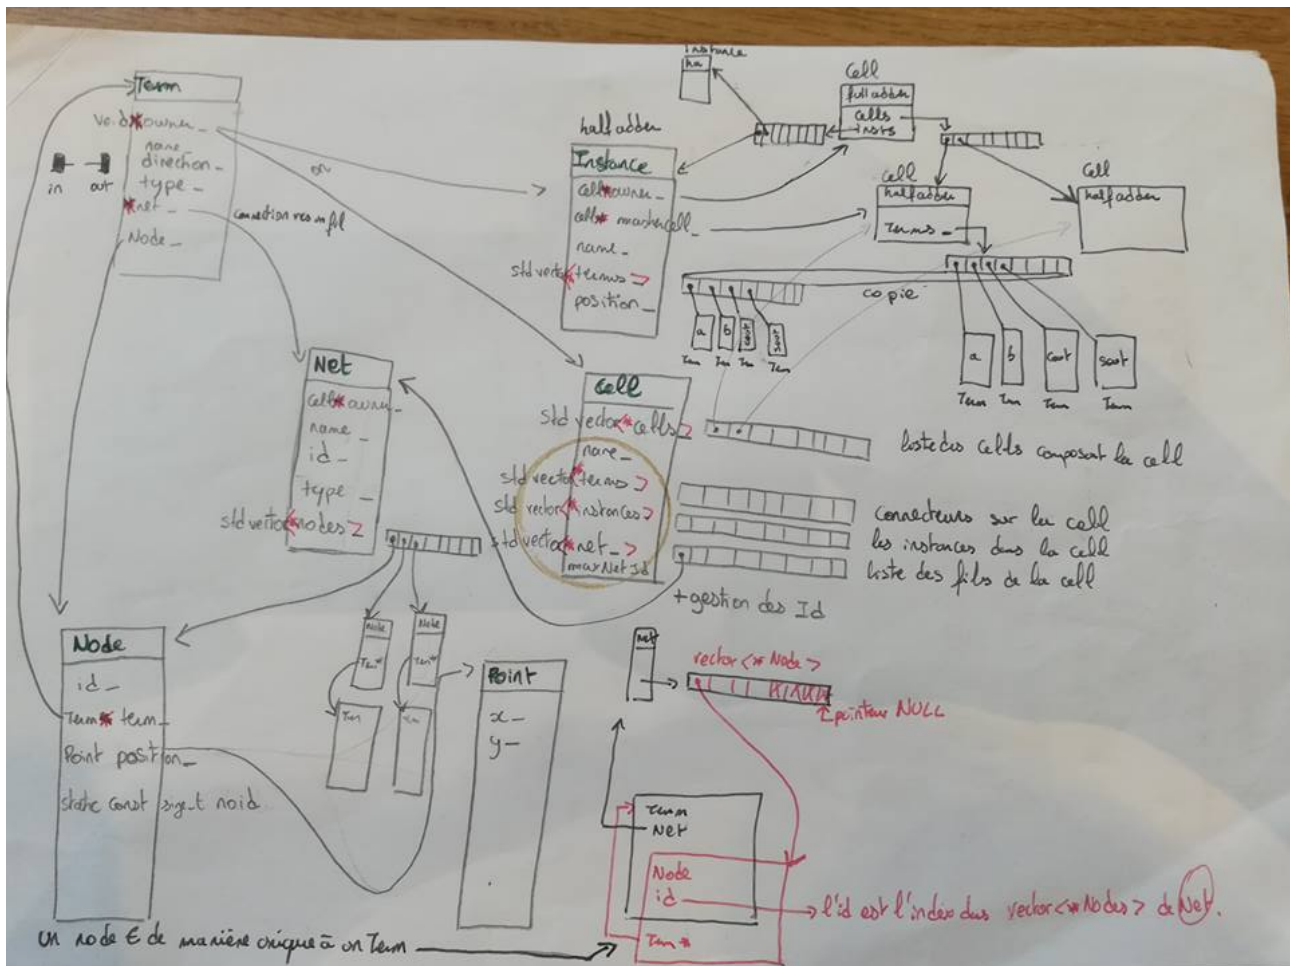 Term
void*owner_
name
direction_
type_
*net_
Node_
in
out
or
connection vers un fil
Instance
ha
Cell
full adder
cells
insts
half adder
Instance
cell*owner_
cell* mastercell_
name_
std vector<*terms>
position_
cell
half adder
Terms_
Cell
half adder
copie
a
b
cout
sout
Term
a
b
cout
sout
Term
Term
Term
Term
Net
cell*owner_
name_
id_
type_
std vector<*nodes>
Cell
std vector<*cells>
name_
std vector<*terms>
std vector<*instances>
std vector<*net_>
maxNetId
liste des cells composant la cell
connecteurs sur la cell
les instances dans la cell
liste des fils de la cell
+gestion des Id
Node
id_
Term* term_
Point position_
static const size_t noid
Node
Term*
Term
Node
Term*
Point
x_
y_
Net
vector<*Node>
pointeur NULL
Term
Net
Node
id
Term*
l'id est l'index dans vector<*Nodes> de Net.
un node € de manière unique à un Term